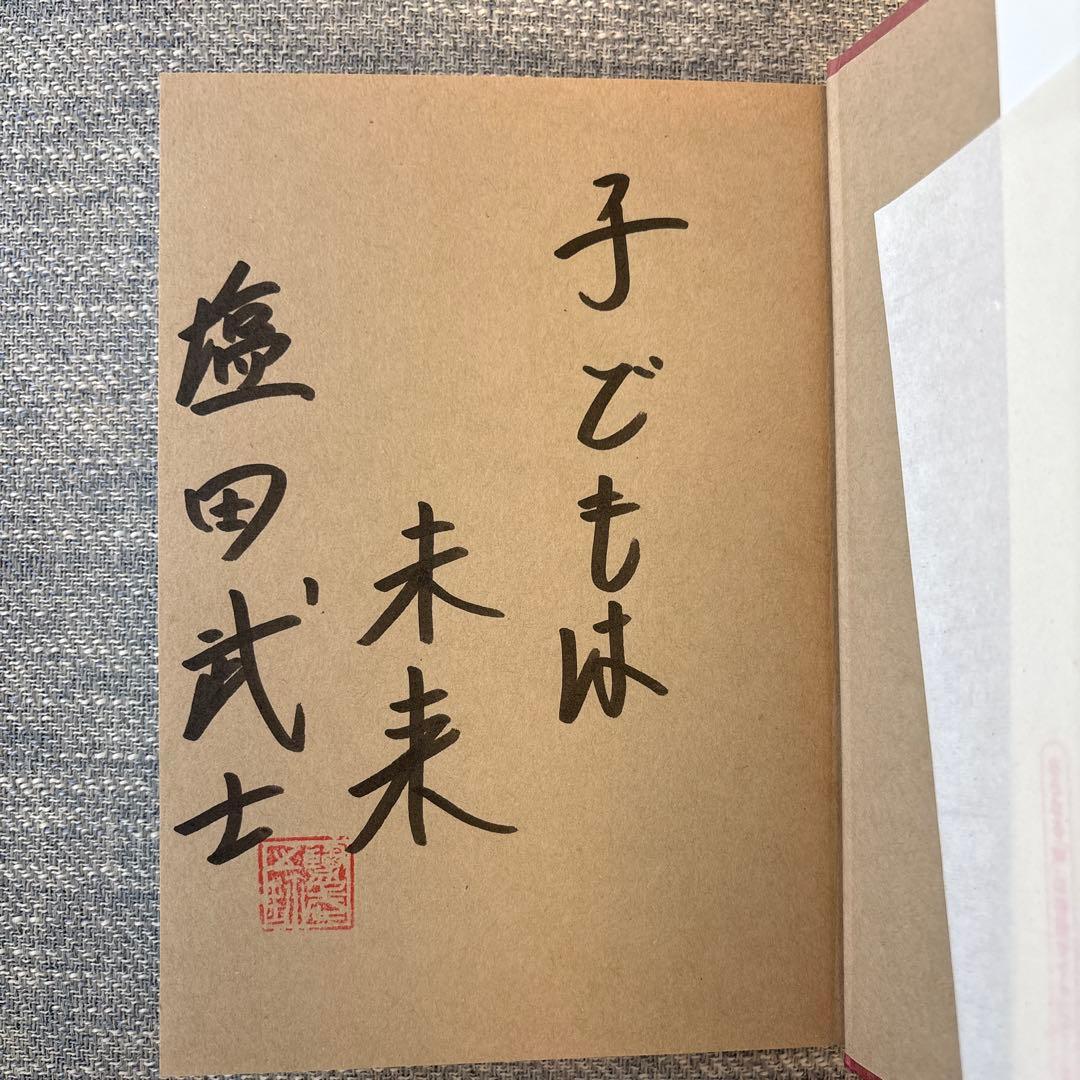 子どもは
未来
塩田武士